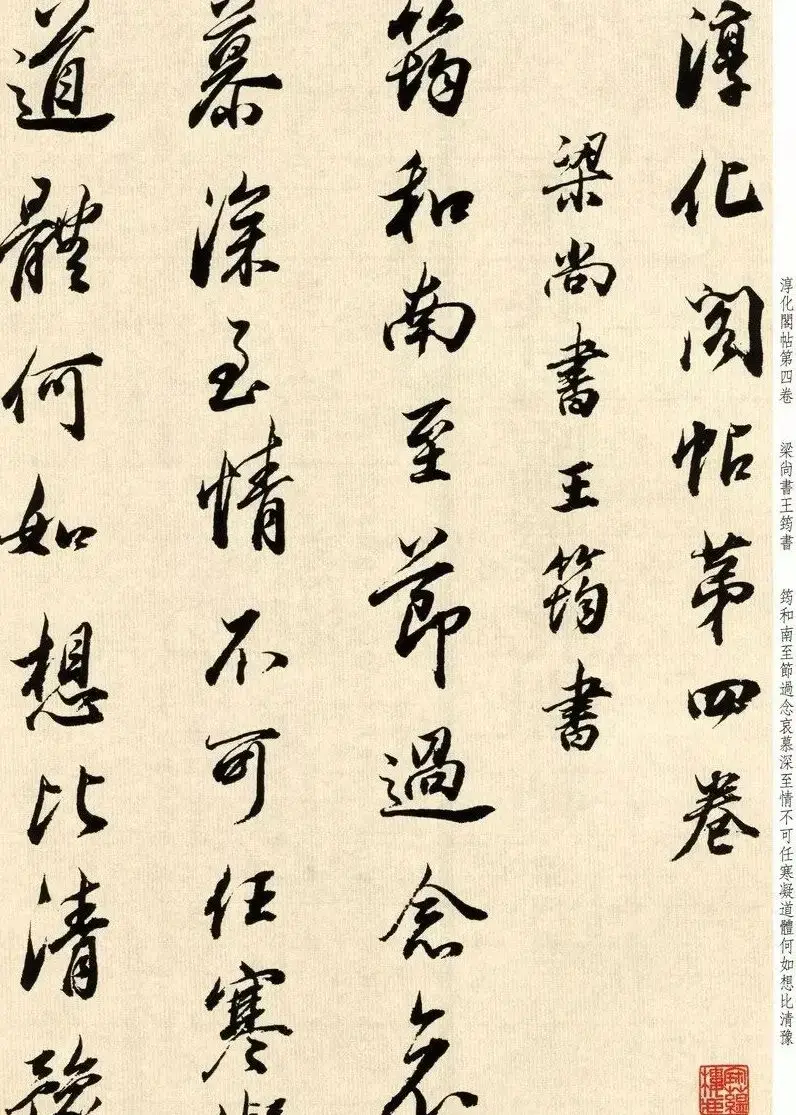 淳化閣帖第四卷
梁尚書王筠書
筠和南至節過念哀
慕深至情不可任寒凝
道體何如想比清豫
淳化閣帖第四卷 梁尚書王筠書 筠和南至節過念哀慕深至情不可任寒凝道體何如想比清豫